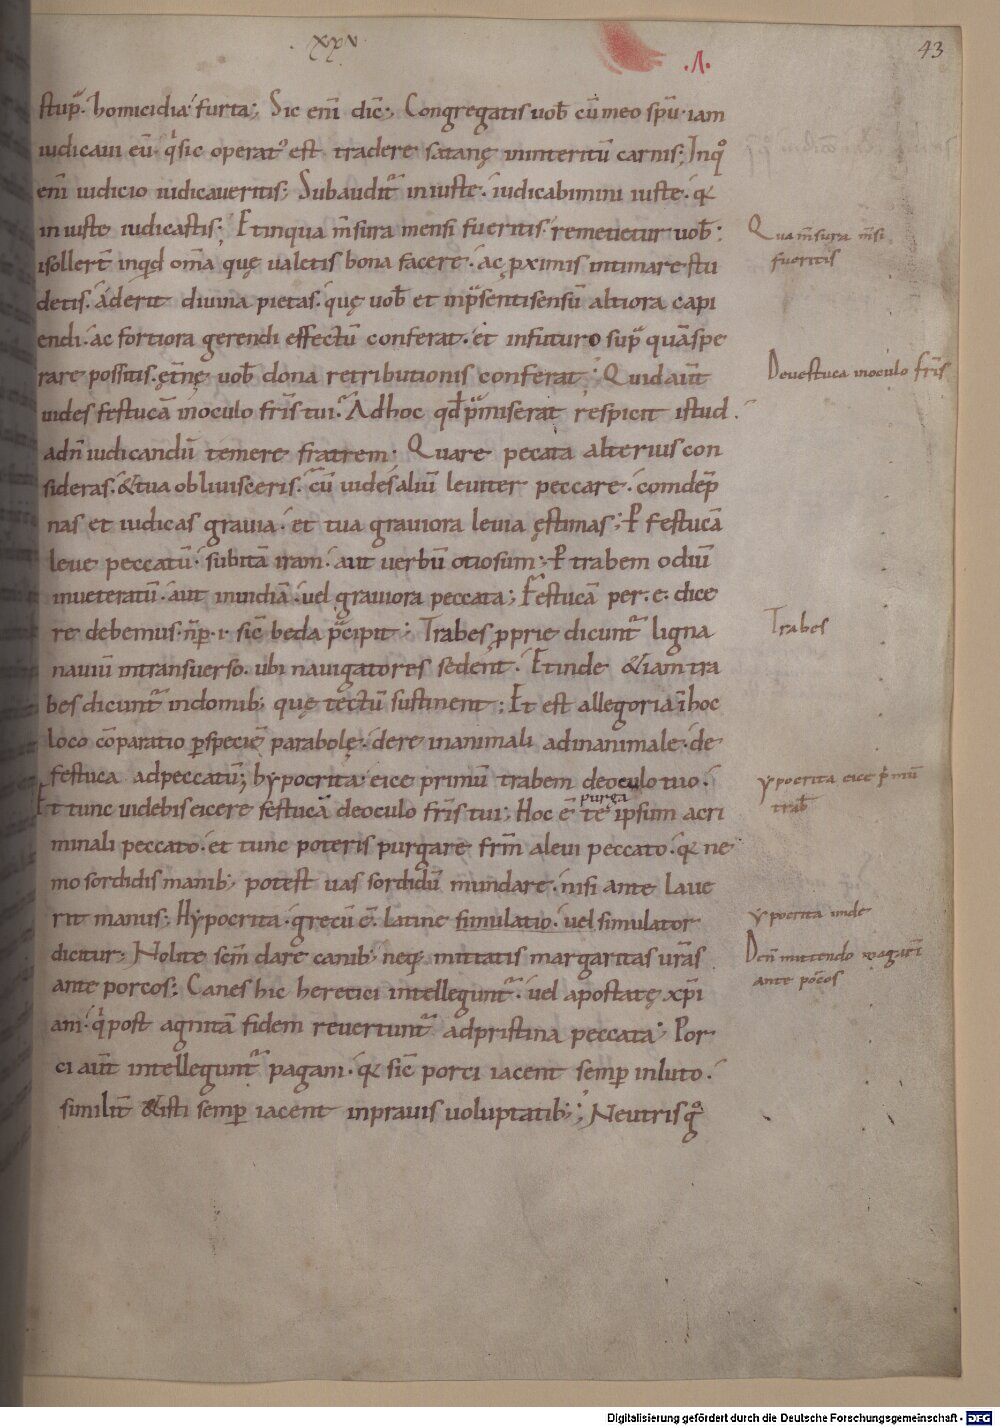 xxv
.Λ.
43
stup̅. homicidia. furta; Sic eni̅ dic̅; Congregatis uob̅ cu̅ meo sp̅u. iam
iudicaui eu̅. q̍ sic operat᷒ est tradere satanę ininteritu̅ carnis; Inq̊
eni̅ iudicio iudicaueritis; Subaudit᷑ iniuste. iudicabimini iuste. q̅
iniuste iudicastis; Et inqua m̅sura mensi fueritis. remetietur uob̅;
Qua m̅sura m̅si
fueritis
isollert̅ inq̅d om̅a quę ualetis bona facere. ac p̱ximis intimare stu
detis. aderit diuina pietas. quę uob̅ et inp̅sentisensu̅ altiora capi
endi. ac fortiora gerendi effectu̅ conferat. et infuturo sup̅ qua̅spe
rare possitis. ęt̅nę uob̅ dona retributionis conferat; Quid aut̅
Defestuca inoculo fr̅is
uides festuca̅ inoculo fr̅is tui. Adhoc qd̅ p̅miserat respicit istud.
adn̅ iudicandu̅ temere fratrem; Quare pecata alterius con
sideras. & tua obliuisceris. cu̅ uides aliu̅ leuiter peccare. comde̅p
nas et iudicas grauia. et tua grauiora leuia ęstimas; P̱ festuca̅
leue peccatu̅. subita̅ ira̅m. aut uerbu̅ otiosum; P̱ trabem odiu̅
inueteratu̅. aut inuidia̅. uel grauiora peccata; Festuca̅ per .e. dice
re debemus. n̅ p̱ .i. sic̅ beda p̅cipit; Trabes p̱prie dicunt᷑ ligna
Trabes
nauiu̅ intransuerso. ubi nauigatores sedent. Et inde & iam tra
bes dicunt᷑ indomib; quę tectu̅ sustinent; Et est allegoria i̅ hoc
loco co̅paratio p̱ specie̅ parabolę. idere inanimali adinanimale. de
festuca adpeccatu̅; hypocrita. eice primu̅ trabem deoculo tuo.
ypocrita eice p̍mu̅
trab̅
Et tunc uidebis eicere festuca̅ deoculo fr̅is tui; Hoc e̅ te ipsum acri
purga
minali peccato. et tunc poteris purgare fr̅m aleui peccato. q̅ ne
mo sordidis manib; potest uas sordidu̅ mundare. nisi ante laue
rit manus; Hypocrita. grecu̅ e̅. latine simulatio. uel simulator
ypocrita unde
dicitur; Nolite sc̅m dare canib; neq; mittatis margaritas ur̅as
Den̅ mittendo magari̅
ante porcos
ante porcos; Canes hic heretici intellegunt᷑. uel apostatę xp̅i
ani. q̍ post agnita̅ fidem reuertunt᷑ adpristina peccata; Por
ci aut̅ intellegunt᷑ pagani. q̅ sic̅ porci iacent semp̱ inluto.
similit̅ & isti semp̱ iacent inprauis uoluptatib; Neutris g̊
Digitalisierung gefördert durch die Deutsche Forschungsgemeinschaft - DFG